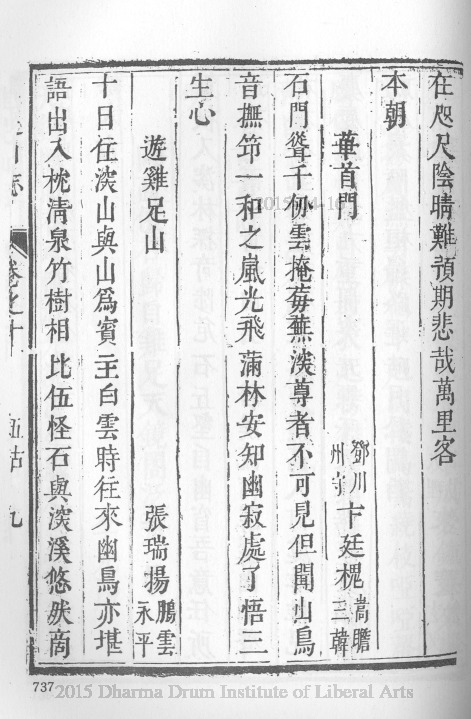 在咫尺陰晴難預期悲哉萬里客
本朝
華首門 鄧川州守 卞廷櫆 嵩瞻三韓
石門聳千仞雲掩薜蕪深尊者不可見但聞山鳥
音撫筇一和之嵐光飛滿林安知幽寂處了悟三
生心
遊雞足山 張瑞揚 鵬雲永平
十日住深山與山爲賓主白雲時往來幽鳥亦堪
語出入枕清泉竹樹相比伍怪石與深溪悠然商
山志
卷之十
五古
九
737
2015 Dharma Drum Institute of Liberal Arts